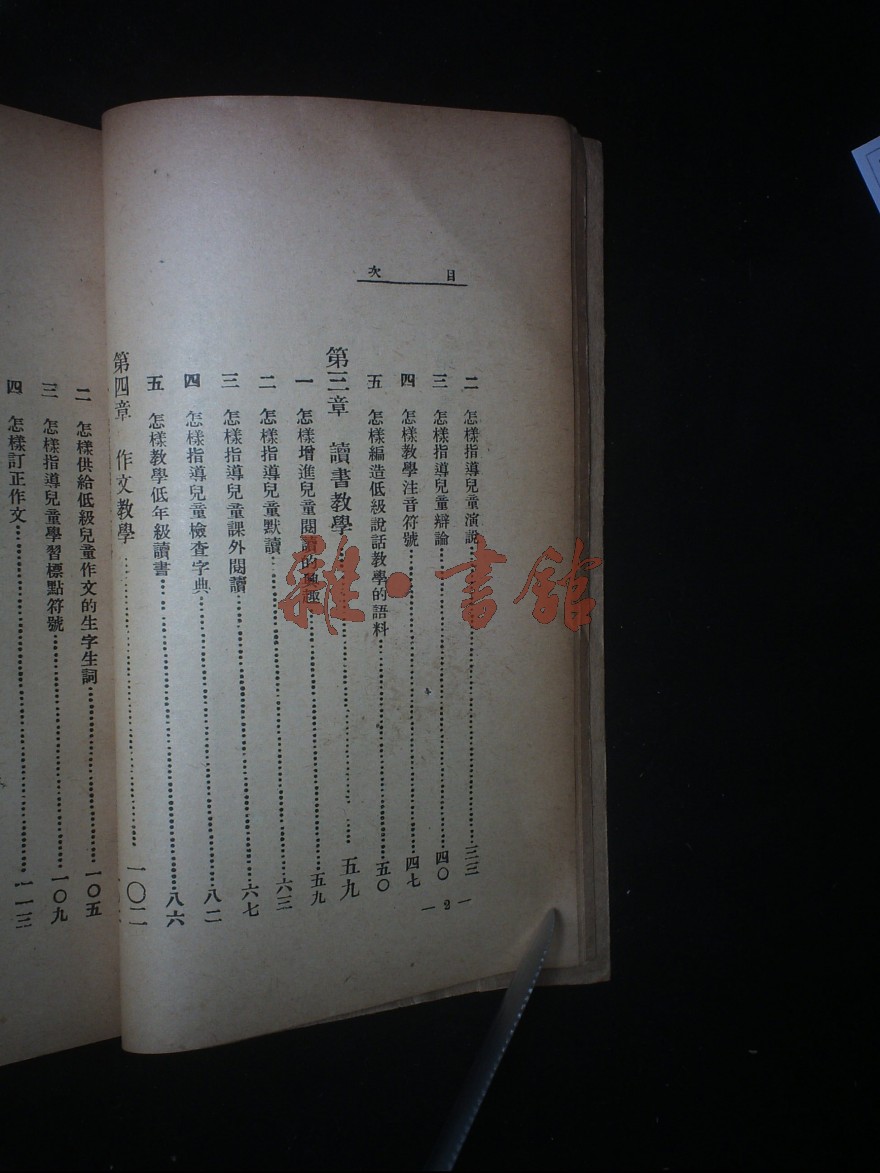 目次
二 怎樣指導兒童演說……三三
三 怎樣指導兒童辯論……四〇
四 怎樣教學注音符號……四七
五 怎樣編造低級說話教學的語料……五〇
第三章 讀書教學……五九
一 怎樣增進兒童閱讀的興趣……五九
二 怎樣指導兒童默讀……六三
三 怎樣指導兒童課外閱讀……六七
四 怎樣指導兒童檢查字典……八二
五 怎樣教學低年級讀書……八六
第四章 作文教學……一〇二
二 怎樣供給低級兒童作文的生字生詞……一〇五
三 怎樣指導兒童學習標點符號……一〇九
四 怎樣訂正作文……一一三
— 2 —
雜·書館